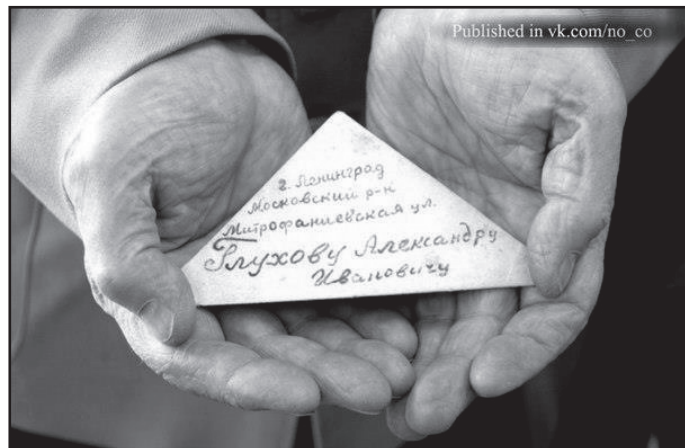 Published in vk.com/no_co
г. Ленинград
Московский р-н
Митрофаниевская ул.
Глухову Александру
Ивановичу